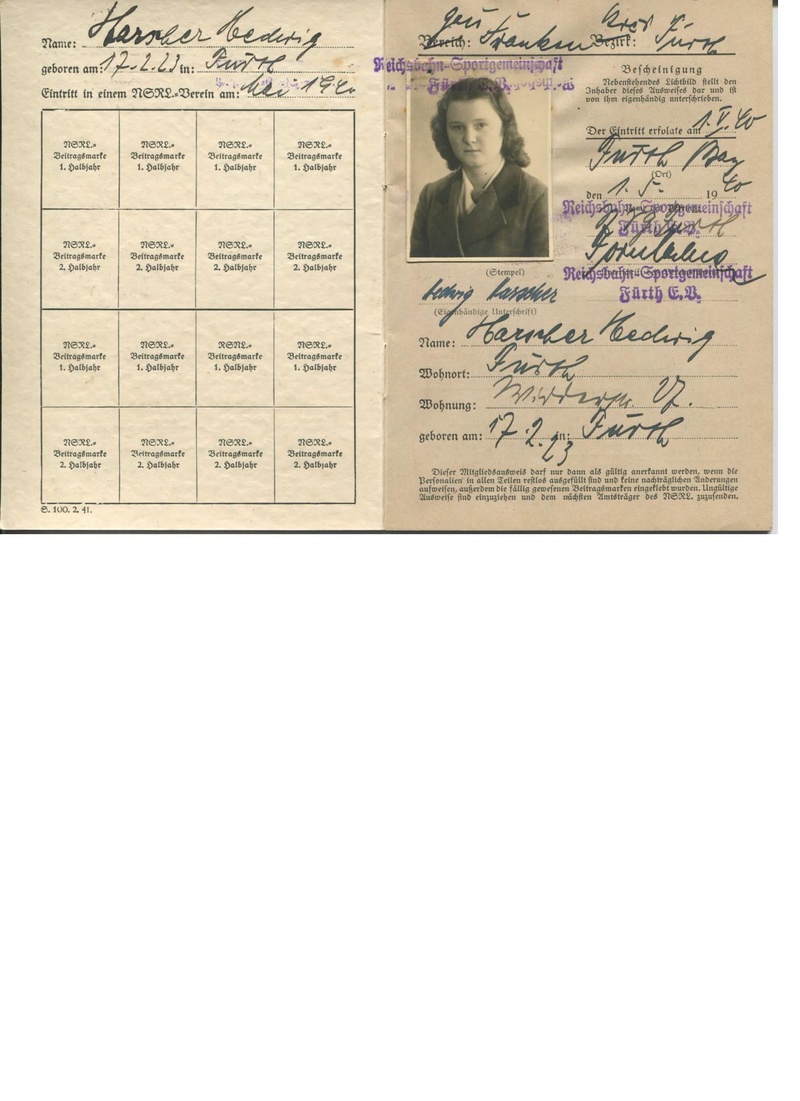 Name: Harscher Hedwig
geboren am: 17.2.23 in: Fürth
Eintritt in einem NSRL.-Verein am: Mai 1940
NSRL.- NSRL.- NSRL.- NSRL.-
Beitragsmarke Beitragsmarke Beitragsmarke Beitragsmarke
1. Halbjahr 1. Halbjahr 1. Halbjahr 1. Halbjahr
NSRL.- NSRL.- NSRL.- NSRL.-
Beitragsmarke Beitragsmarke Beitragsmarke Beitragsmarke
2. Halbjahr 2. Halbjahr 2. Halbjahr 2. Halbjahr
NSRL.- NSRL.- NSRL.- NSRL.-
Beitragsmarke Beitragsmarke Beitragsmarke Beitragsmarke
1. Halbjahr 1. Halbjahr 1. Halbjahr 1. Halbjahr
NSRL.- NSRL.- NSRL.- NSRL.-
Beitragsmarke Beitragsmarke Beitragsmarke Beitragsmarke
2. Halbjahr 2. Halbjahr 2. Halbjahr 2. Halbjahr
S. 100. 2. 41.
Gau Kreis
Bereich: Franken Bezirk: Fürth
Reichsbahn-Sportgemeinschaft
Fürth E.V.
Bescheinigung
Nebenstehendes Lichtbild stellt den
Inhaber dieses Ausweises dar und ist
von ihm eigenhändig unterschrieben.
Der Eintritt erfolgte am 1.V.40
Fürth Bay
(Ort)
den 1. 5. 1940
Reichsbahn-Sportgemeinschaft
Fürth E.V.
(Stempel)
Reichsbahn-Sportgemeinschaft
Fürth E.V.
Hedwig Harscher
(Eigenhändige Unterschrift)
Name: Harscher Hedwig
Wohnort: Fürth
Wohnung: 27.
geboren am: 17.2.23 in: Fürth
Dieser Mitgliedsausweis darf nur dann als gültig anerkannt werden, wenn die
Personalien in allen Teilen restlos ausgefüllt sind und keine nachträglichen Änderungen
aufweisen, außerdem die fällig gewesenen Beitragsmarken eingeklebt wurden. Ungültige
Ausweise sind einzuziehen und dem nächsten Amtsträger des NSRL. zuzusenden.